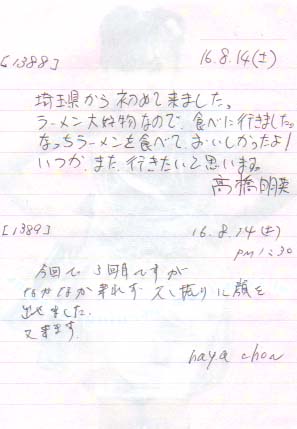 [1388]
16.8.14(土)
埼玉県から初めて来ました。
ラーメン大好物なので、食べに行きました。
なっちラーメンを食べて、おいしかったよ!
いつか、また、行きたいと思います。
高橋明英
[1389]
16.8.14(土)
PM1:30
今回で3回目ですが
なかなか来れず 久し振りに顔を
出せました。
又来ます。
haya chan